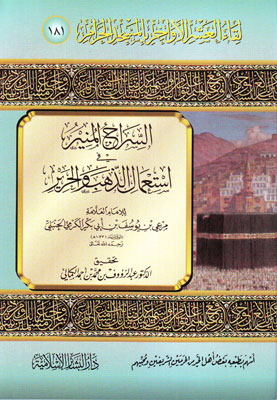 لقاء العشر الأواخر بالمسجد الحرام
(١٨١)
السراج المنير
في
استعمال الذهب والحرير
للإمام العلامة
مرعي بن يوسف بن أبي بكر الكرمي الحنبلي
رحمه الله تعالى
تحقيق
الدكتور عبد الرؤوف بن محمد بن أحمد الكمالي
أسهم بطبعه بعض أهل الخير من الحرمين الشريفين ومحبيهم
دار البشائر الإسلامية